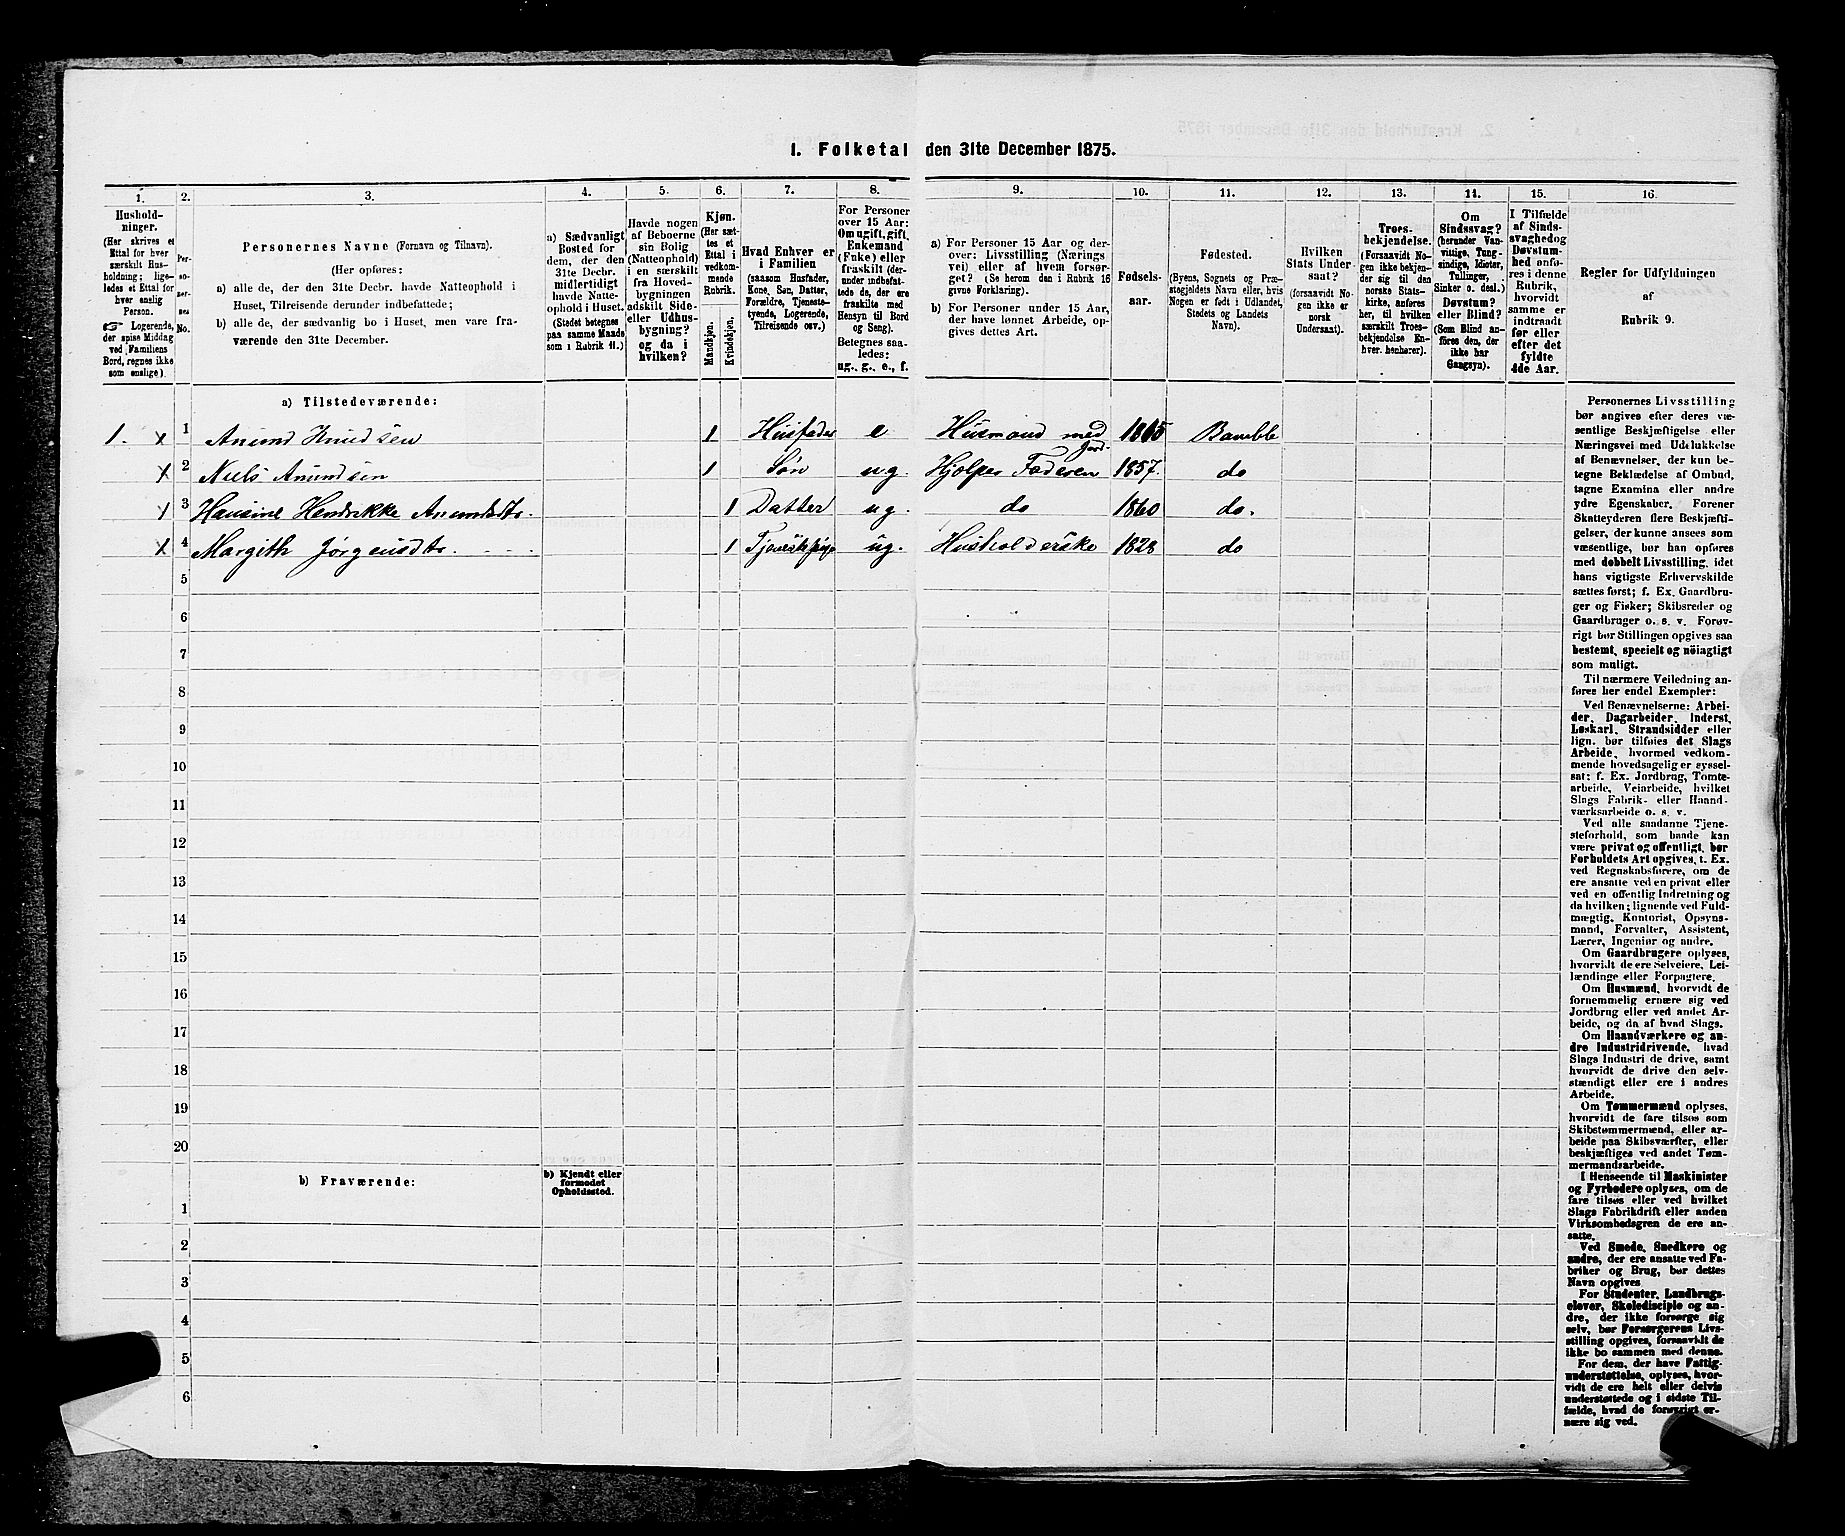 1. Folketal den 31te December 1875.
1.
2.
3.
4.
5.
6.
7.
8.
9.
10.
11.
12.
13.
14.
15.
16.
Hushold-
ninger.
(Her skrives et
Ettal for hver
særskilt Hus-
holdning; lige-
ledes et Ettal for
hver enslig
Person.
☞ Logerende,
der spise Middag
ved Familiens
Bord, regnes ikke
som enslige).
Per-
so-
ner-
nes
No.
Personernes Navne (Fornavn og Tilnavn).
(Her opføres:
a) alle de, der den 31te Decbr. havde Natteophold i
Huset, Tilreisende derunder indbefattede;
b) alle de, der sædvanlig bo i Huset, men vare fra-
værende den 31te December.
a) Sædvanligt
Bosted for
dem, der den
31te Decbr.
midlertidigt
havde Natte-
ophold i Huset.
(Stedet betegnes
paa samme Maade
som i Rubrik 11.)
Havde nogen
af Beboerne
sin Bolig
(Natteophold)
i en særskilt
fra Hoved-
bygningen
adskilt Side-
eller Udhus-
bygning?
og da i
hvilken?
Kjøn.
(Her sæt-
tes et
Ettal i
vedkom-
mende
Rubrik.
Mandkjøn.
Kvindekjøn.
Hvad Enhver er
i Familien
(saasom Husfader,
Kone, Søn, Datter,
Forældre, Tjeneste-
tyende, Logerende,
Tilreisende osv.)
For Personer
over 15 Aar:
Om ugift, gift,
Enkemand
(Enke) eller
fraskilt (der-
under indbefat-
tede de, der ere
fraskilte med
Hensyn til Bord
og Seng).
Betegnes saa-
ledes:
ug., g., e., f.
a) For Personer 15 Aar og der-
over: Livsstilling (Nærings
vei) eller af hvem forsør-
get? (Se herom den i Rubrik 16
givne Forklaring).
b) For Personer under 15 Aar,
der have lønnet Arbeide, op-
gives dettes Art.
Fødsels-
aar.
Fødested.
(Byens, Sognets og Præ-
stegjeldets Navn eller, hvis
Nogen er født i Udlandet,
Stedets og Landets
Navn).
Hvilken
Stats Under
saat?
(forsaavidt No
gen ikke er
norsk
Undersaat).
Troes-
bekjendelse.
(Forsaavidt No-
gen ikke bekjen-
der sig til den
norske Stats-
kirke, anføres
her, til hvilken
særskilt Troes-
bekjendelse En-
hver henhører).
Om
Sindssvag?
(herunder Van-
vittige, Tung-
sindige, Idioter,
Tullinger,
Sinker o. desl.)
Døvstum?
eller Blind?
(Som Blind an-
føres den, der
ikke har
Gangsyn).
I Tilfælde
af Sinds-
svaghed og
Døvstum-
hed anfø-
res i denne
Rubrik,
hvorvidt
samme er
indtraadt
før eller
efter det
fyldte
4de Aar.
Regler for Udfyldningen
af
Rubrik 9.
a) Tilstedeværende:
1. x 1 Anund Knudsen 1 Husfader e Husmand med Jord 1815 Bamble
x 2 Niels Anundsen 1 Søn ug. Hjelper Faderen 1857. do
x 3 Hansine Hendrikke Anundsdtr. 1 Datter ug. do 1860 do.
x 4 Margith Jørgensdtr. 1 Tjenestepige ug. Husholderske 1828 do
5
6
7
8
9
10
11
12
13
14
15
16
17
18
19
20
b) Fraværende:
b) Kjendt eller
formodet
Opholdssted.
1
2
3
4
5
6
Personernes Livsstilling
bør angives efter deres væ-
sentlige Beskjæftigelse eller
Næringsvei med Udelukkelse
af Benævnelser, der kun be-
tegne Beklædelse af Ombud,
tagne Examina eller andre
ydre Egenskaber. Forener
Skatteyderen flere Beskjæfti-
gelser, der kunne ansees som
væsentlige, bør han opføres
med dobbelt Livsstilling, idet
hans vigtigste Erhvervskilde
sættes først; f. Ex. Gaardbru-
ger og Fisker; Skibsreder og
Gaardbruger o. s. v. Forøv-
rigt bør Stillingen opgives saa
bestemt, specielt og nøiagtigt
som muligt.
Til nærmere Veiledning an-
føres her endel Exempler:
Ved Benævnelserne: Arbei-
der, Dagarbeider, Inderst,
Løskarl, Strandsidder eller
lign. bør tilføies det Slags
Arbeide, hvormed vedkom-
mende hovedsagelig er syssel-
sat; f. Ex. Jordbrug, Tomte-
arbeide, Veiarbeide, hvilket
Slags Fabrik- eller Haand-
værksarbeide o. s. v.
Ved alle saadanne Tjene-
steforhold, som baade kan
være privat og offentligt, bør
Forholdets Art opgives, t. Ex.
ved Regnskabsførere, om de
ere ansatte ved en privat eller
ved en offentlig Indretning og
da hvilken; lignende ved Fuld-
mægtig, Kontorist, Opsyns-
mand, Forvalter, Assistent,
Lærer, Ingeniør og andre.
Om Gaardbrugere oplyses,
hvorvidt de ere Selveiere, Lei-
lændinge eller Forpagtere.
Om Husmænd, hvorvidt de
fornemmelig ernære sig ved
Jordbrug eller ved andet Ar-
beide, og da af hvad Slags.
Om Haandværkere og an-
dre Industridrivende, hvad
Slags Industri de drive, samt
hvorvidt de drive den selv-
stændigt eller ere i andres
Arbeide.
Om Tømmermænd oplyses,
hvorvidt de fare tilsøs som
Skibstømmermænd, eller ar-
beide paa Skibsværfter, eller
beskjæftiges ved andet Tøm-
mermandsarbeide.
I Henseende til Maskinister
og Fyrbødere oplyses, om de
fare tilsøs eller ved hvilket
Slags Fabrikdrift eller anden
Virksombedsgren de ere an-
satte.
Ved Smede, Snedkere og
andre, der ere ansatte ved Fa-
briker og Brug, bør dettes
Navn opgives
For Studenter, Landbrugs-
elever, Skoledisciple og an-
dre, der ikke forsørge sig
selv, bør Forsørgerens Livs-
stilling opgives, forsaavidt de
ikke bo sammen med denne.
For dem, der have Fattig-
understøttelse, oplyses, hvor-
vidt de ere helt eller delvis
understøttede og i sidste Til-
fælde, hvad de forøvrigt er-
nære sig ved.